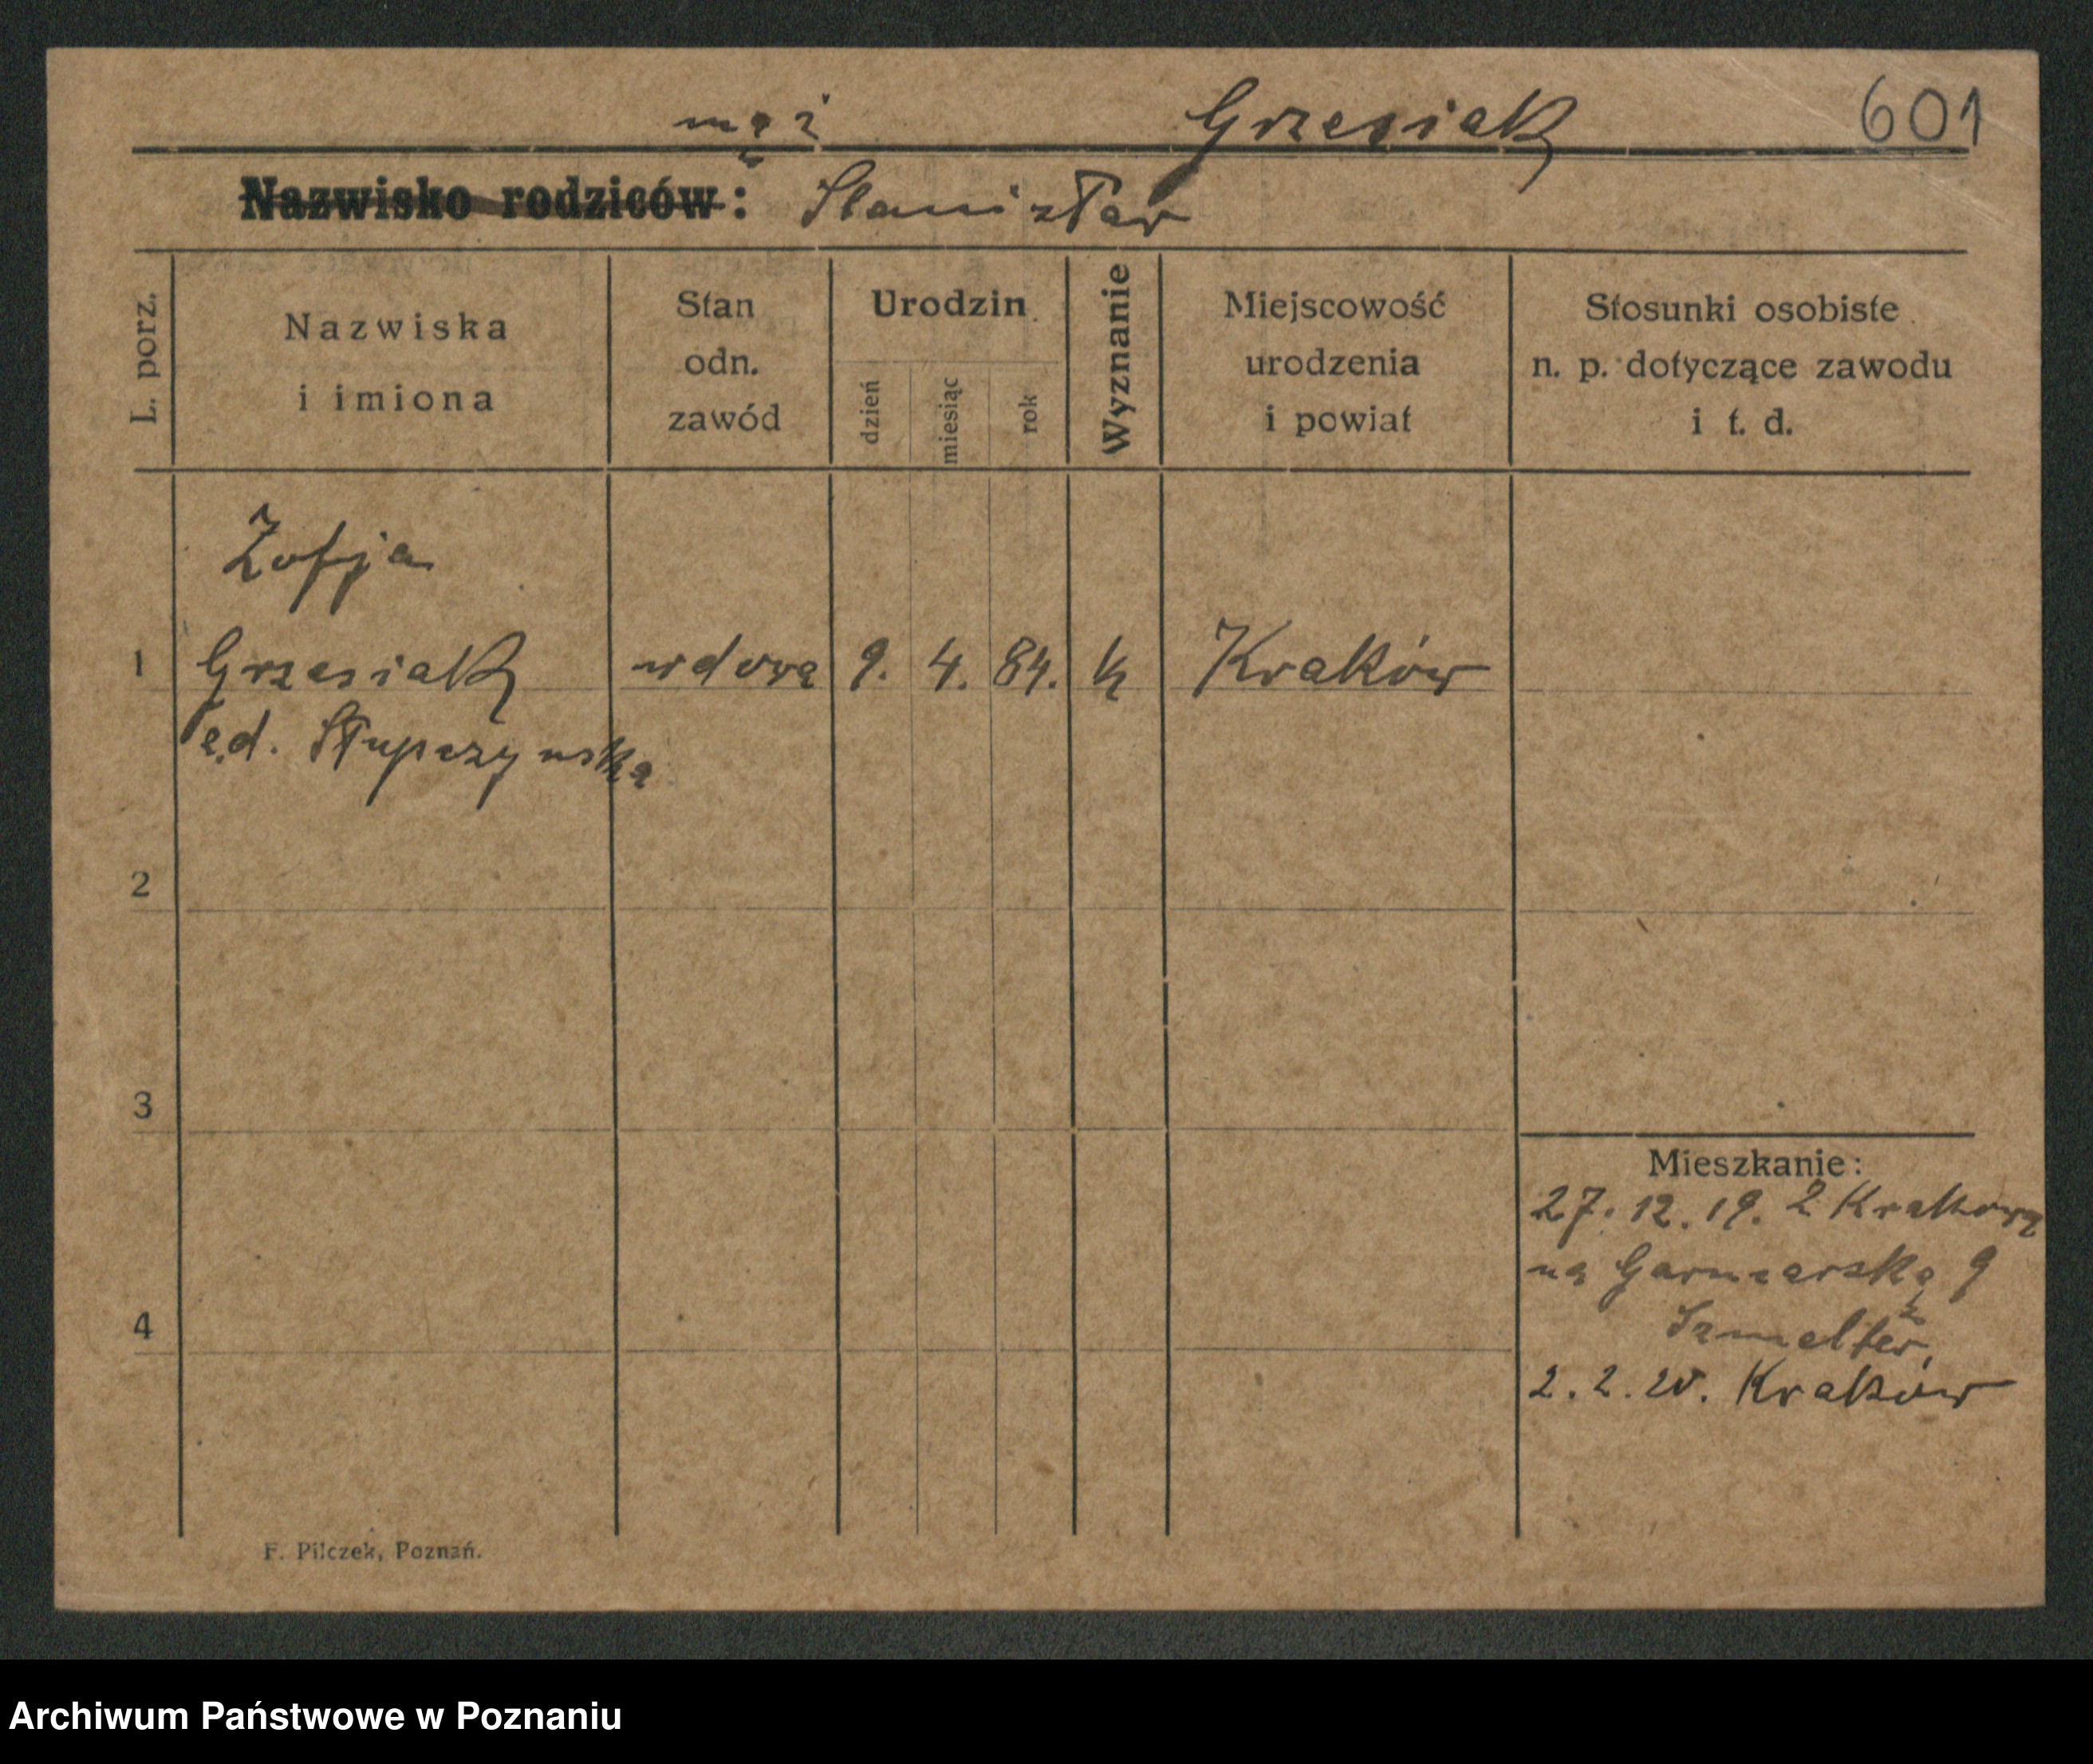 mąż Grzesiak 601
Nazwisko rodziców: Stanisław
L. porz.
Nazwiska
i imiona
Stan
odn.
zawód
Urodzin
dzień
miesiąc
rok
Wyznanie
Miejscowość
urodzenia
i powiat
Stosunki osobiste
n. p. dotyczące zawodu
i t. d.
Zofja
1 Grzesiak wdowa 9. 4. 84. k Kraków
Słupczyńska
2
3
4
Mieszkanie:
27. 12. 19. z Krakowa
na Garncarską 9
Szmelter,
2. 2. 20. Kraków
F. Pilczek, Poznań.
Archiwum Państwowe w Poznaniu